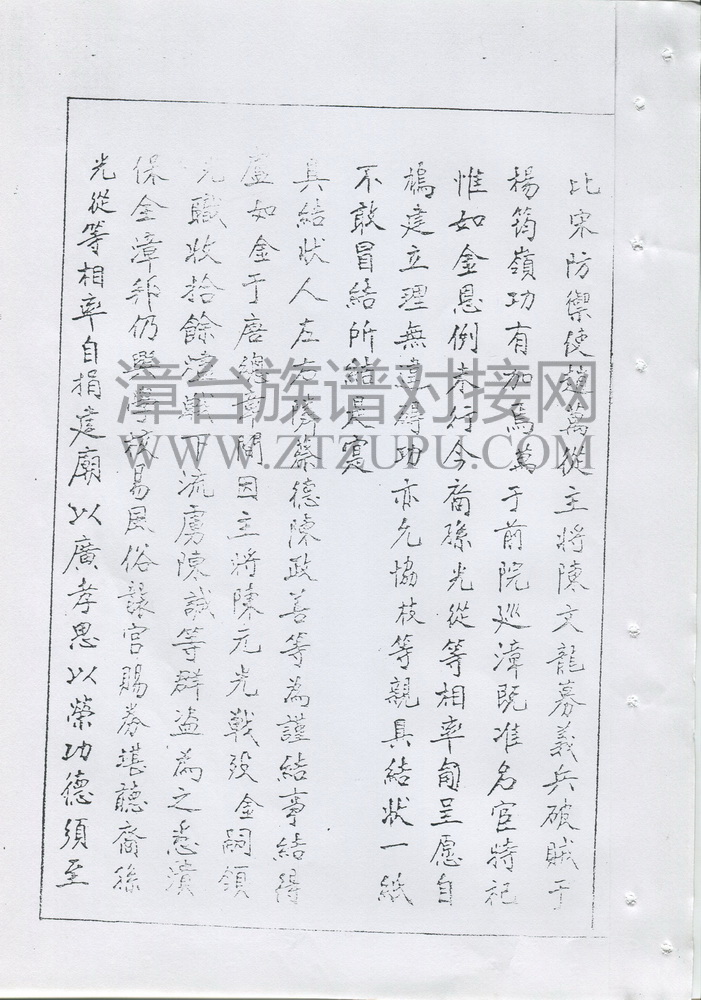 比宋防禦使趙萬從主將陳文龍募義兵破賊于
楊筠嶺功有加焉萬于前院巡漳既准名宦特祀
惟如金恩例未行今裔孫光從等相率匍呈愿自
鳩建立理無違碍功亦允協枝等親具結狀一紙
不敢冒結所結是寔
具結狀人左右隣蔡德陳政善等為謹結事結得
盧如金于唐總章間因主將陳元光戰殁金嗣領
元職收拾餘燼戰下流虜陳誠等群盗為之悉潰
保全漳邦仍興學校易民俗錄官賜券堪聽裔孫
光從等相率自捐建廟以廣孝思以榮功德須至
漳台族谱对接网
WWW.ZTZUPU.COM